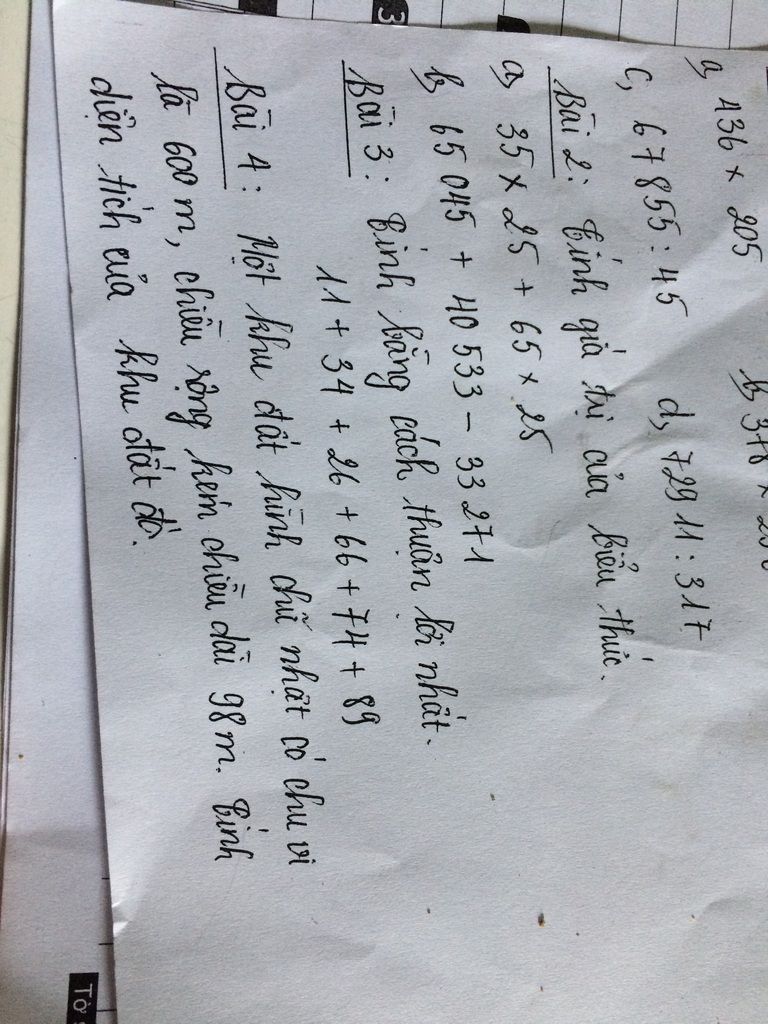 a, 436 × 205
c, 67855 : 45 d, 72911 : 317
Bài 2: Tính giá trị của biểu thức.
a, 35 × 25 + 65 × 25
b, 65 045 + 40 533 - 33 271
Bài 3: Tính bằng cách thuận lợi nhất.
11 + 34 + 26 + 66 + 74 + 89
Bài 4: Một khu đất hình chữ nhật có chu vi
là 600 m, chiều rộng kém chiều dài 98m. Tính
diện tích của khu đất đó.
3